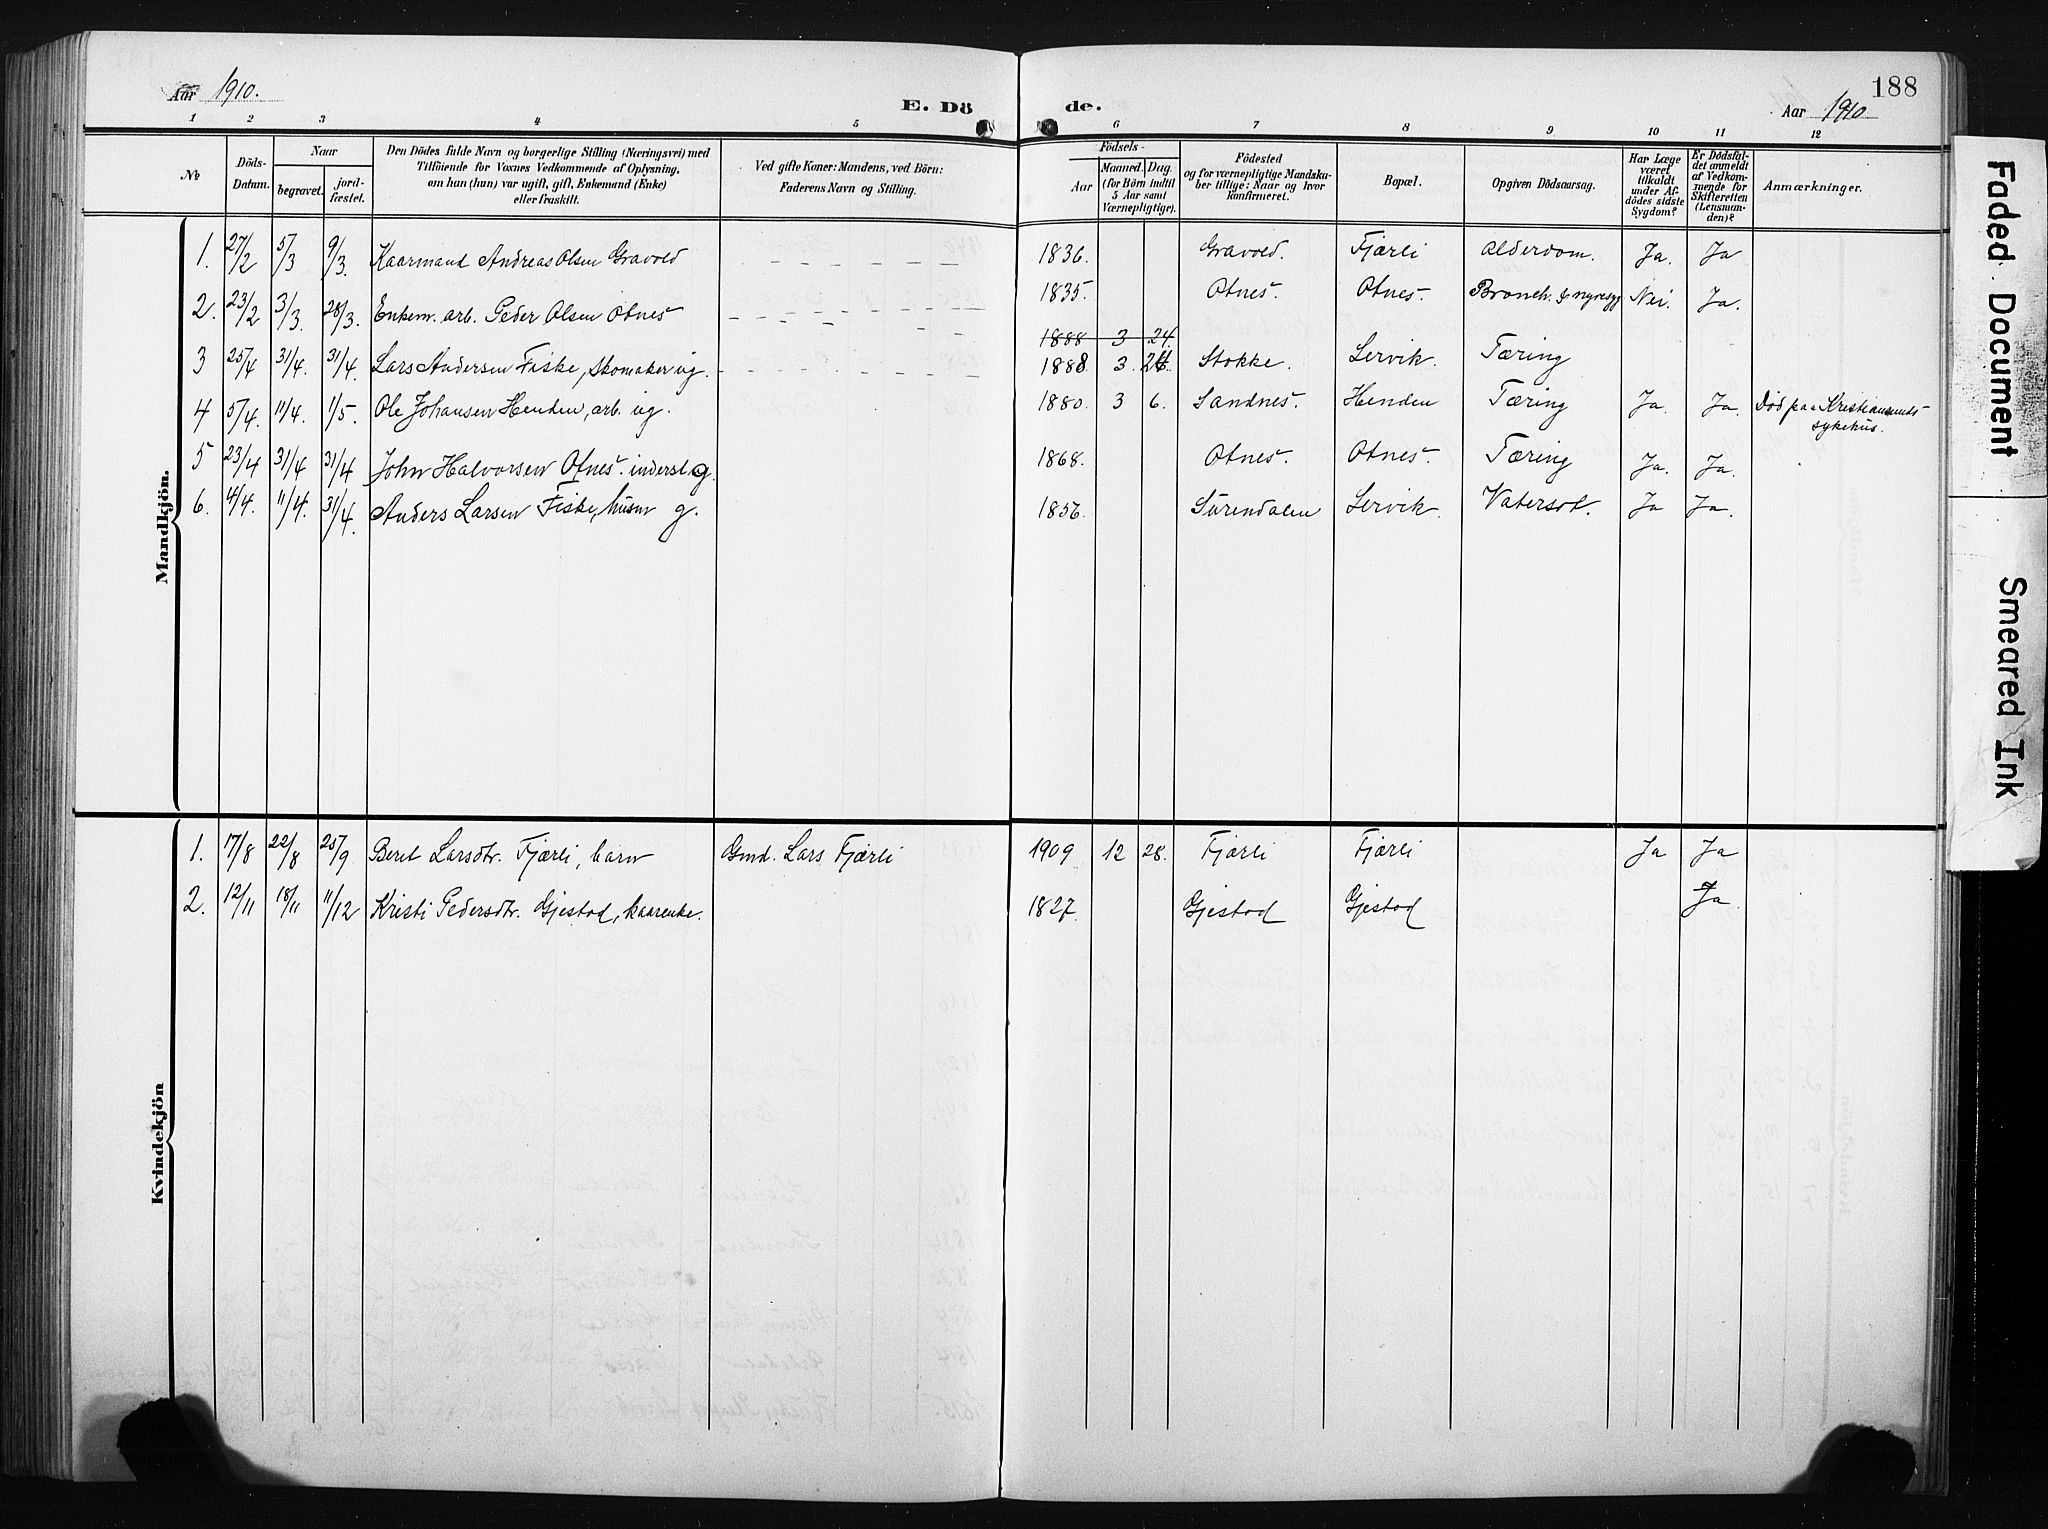 Aar 1910.
E. Dö de.
188
Aar 1910
1 2 3 4 5 6 7 8 9 10 11 12
No
Döds-Datum.
Naar
begravet.
jord-fæstet.
Den Dödes fulde Navn og borgerlige Stilling (Næringsvei) med
Tilföiende for Voxnes Vedkommende af Oplysning,
om han (hun) var ugift, gift, Enkemand (Enke)
eller fraskilt.
Ved gifte Koner: Mandens, ved Börn:
Faderens Navn og Stilling.
Födsels-
Aar
Maaned. Dag.
(for Börn indtil
5 Aar samt
Værnepligtige).
Födested
og for værnepligtige Mandska-
ber tillige: Naar og hvor
konfirmeret.
Bopæl.
Opgiven Dödsaarsag.
Har Læge
været
tilkaldt
under Af-
dödes sidste
Sygdom?
Er Dödsfal-
det anmeldt
af Vedkom-
mende for
Skifteretten
(Lensman-
den)?
Anmærkninger.
Mandkjön.
1. 27/2 5/3 9/3. Kaarmand Andreas Olsen Gravold 1836. Gravold. Fjærli Alderdom. Ja. Ja
2. 23/2 3/3. 28/3. Enkem. arb. Peder Olsen Otnes 1835. Otnes. Otnes. Bronch. & nyresyg Nei. Ja.
1888 3 24.
3 25/4 31/4. 31/4. Lars Andersen Fiske, skomaker ug. 1888. 3. 24. Stokke. Lervik. Tæring
4 5/4. 11/4. 1/5. Ole Johansen Henden, arb. ug. 1880. 3 6. Sandnes. Henden Tæring Ja. Ja. Död paa Kristiansunds
sykehus.
5 23/4 31/4 31/4 John Halvorsen Otnes. inderst g. 1868. Otnes. Otnes. Tæring Ja. Ja.
6. 4/4. 11/4. 31/4. Anders Larsen Fiske, husm g. 1856. Surendalen Lervik. Vatersot. Ja Ja.
Kvindekjön
1. 17/8 22/8 25/9 Beret Larsdtr. Fjærli, barn Gmd. Lars Fjærli 1909 12 28. Fjærli Fjærli Ja Ja
2. 12/11 18/11 11/12 Kristi Pedersdtr. Gjestad, kaarenke. 1827. Gjestad Gjestad Ja.
Faded Document
Smeared Ink